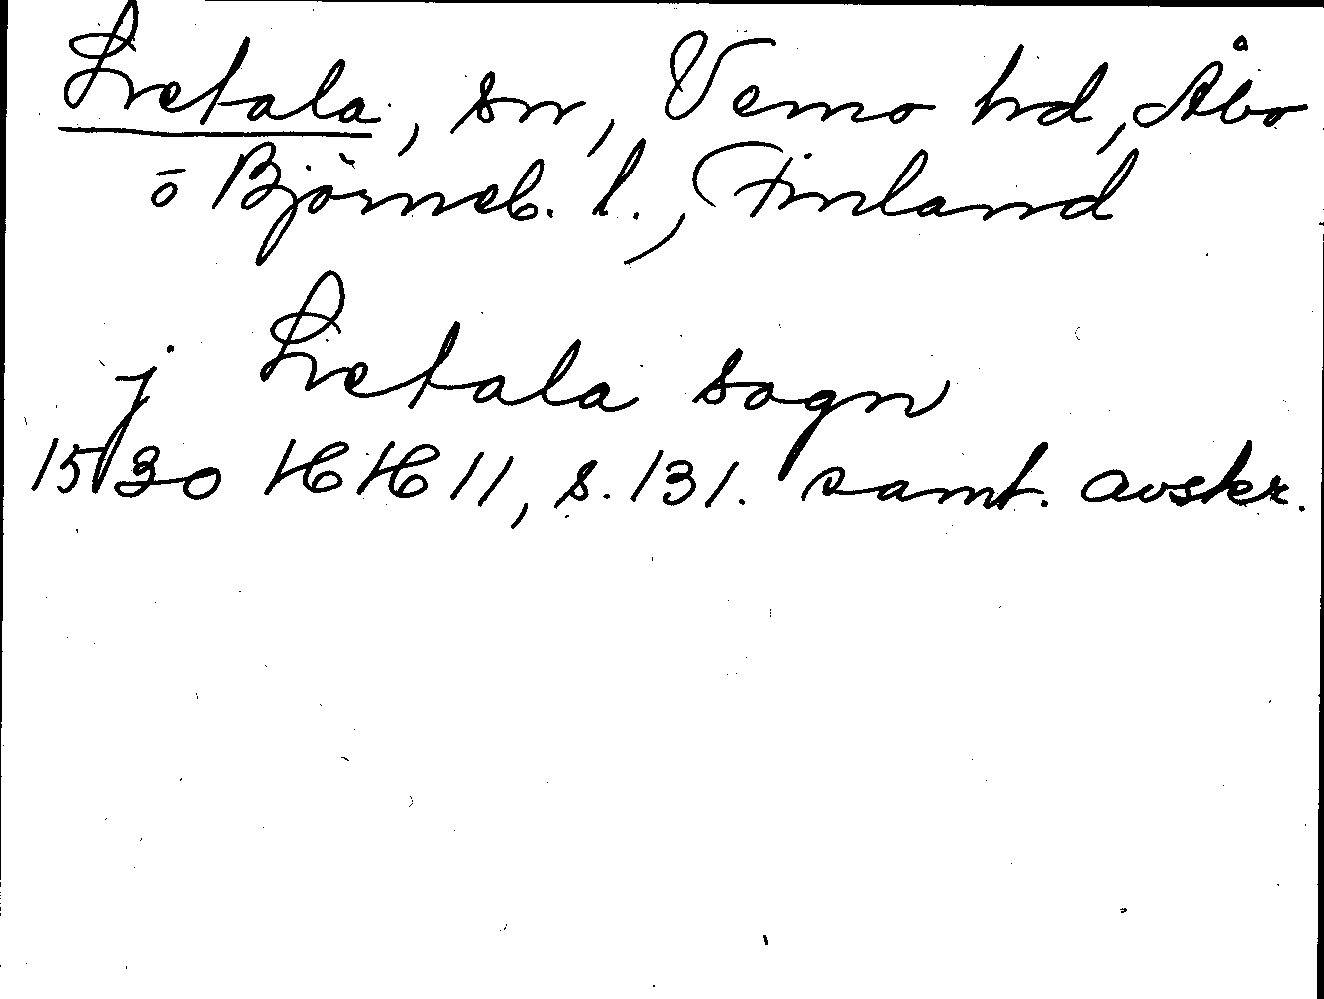 Letala, sn, Vemo hd, Åbo
o Björneb. l., Finland
j Letala sogn
1530 HH 11, s. 131. samt. avskr.